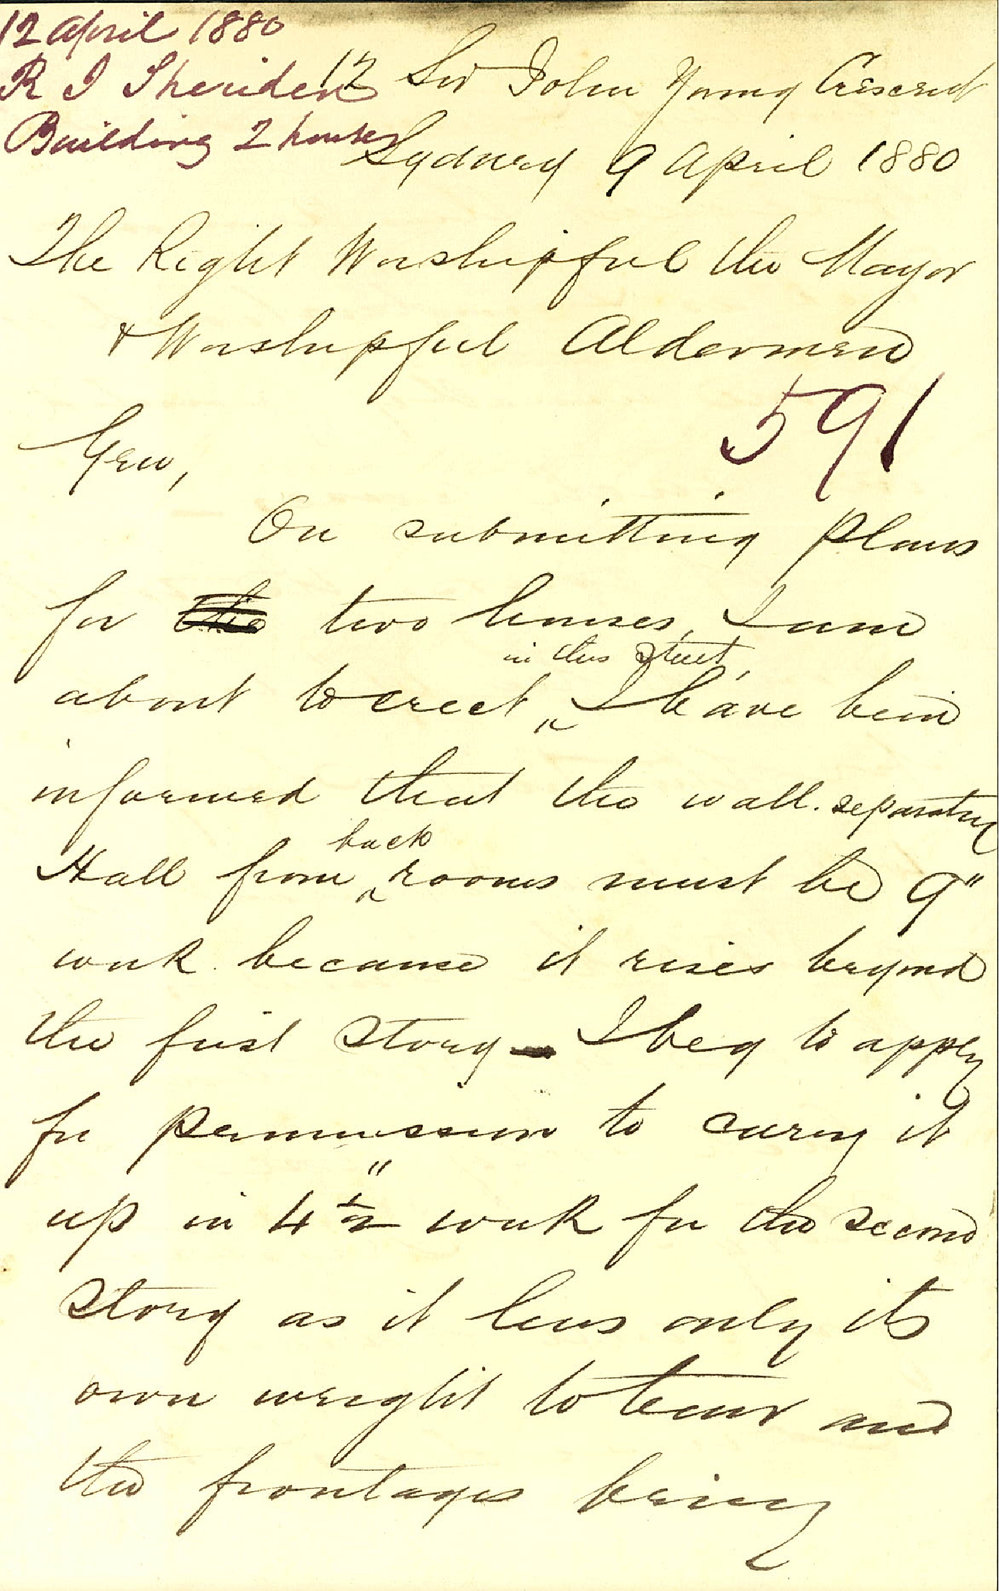 12 April 1880
R I Sheriden
Building 2 houses
12 Sir John Young Crescent
Sydney 9 April 1880
The Right Worshipful the Mayor
& Worshipful Aldermen
591
Gen,
On submitting plans
for the two houses, I am
about to erect in this Street, I have been
informed that the wall separating
Hall from back rooms must be 9"
work because it rises beyond
the first Story - I beg to apply
for permission to carry it
up in 4 1/2" work for the second
Story as it has only its
own weight to bear and
the frontages being